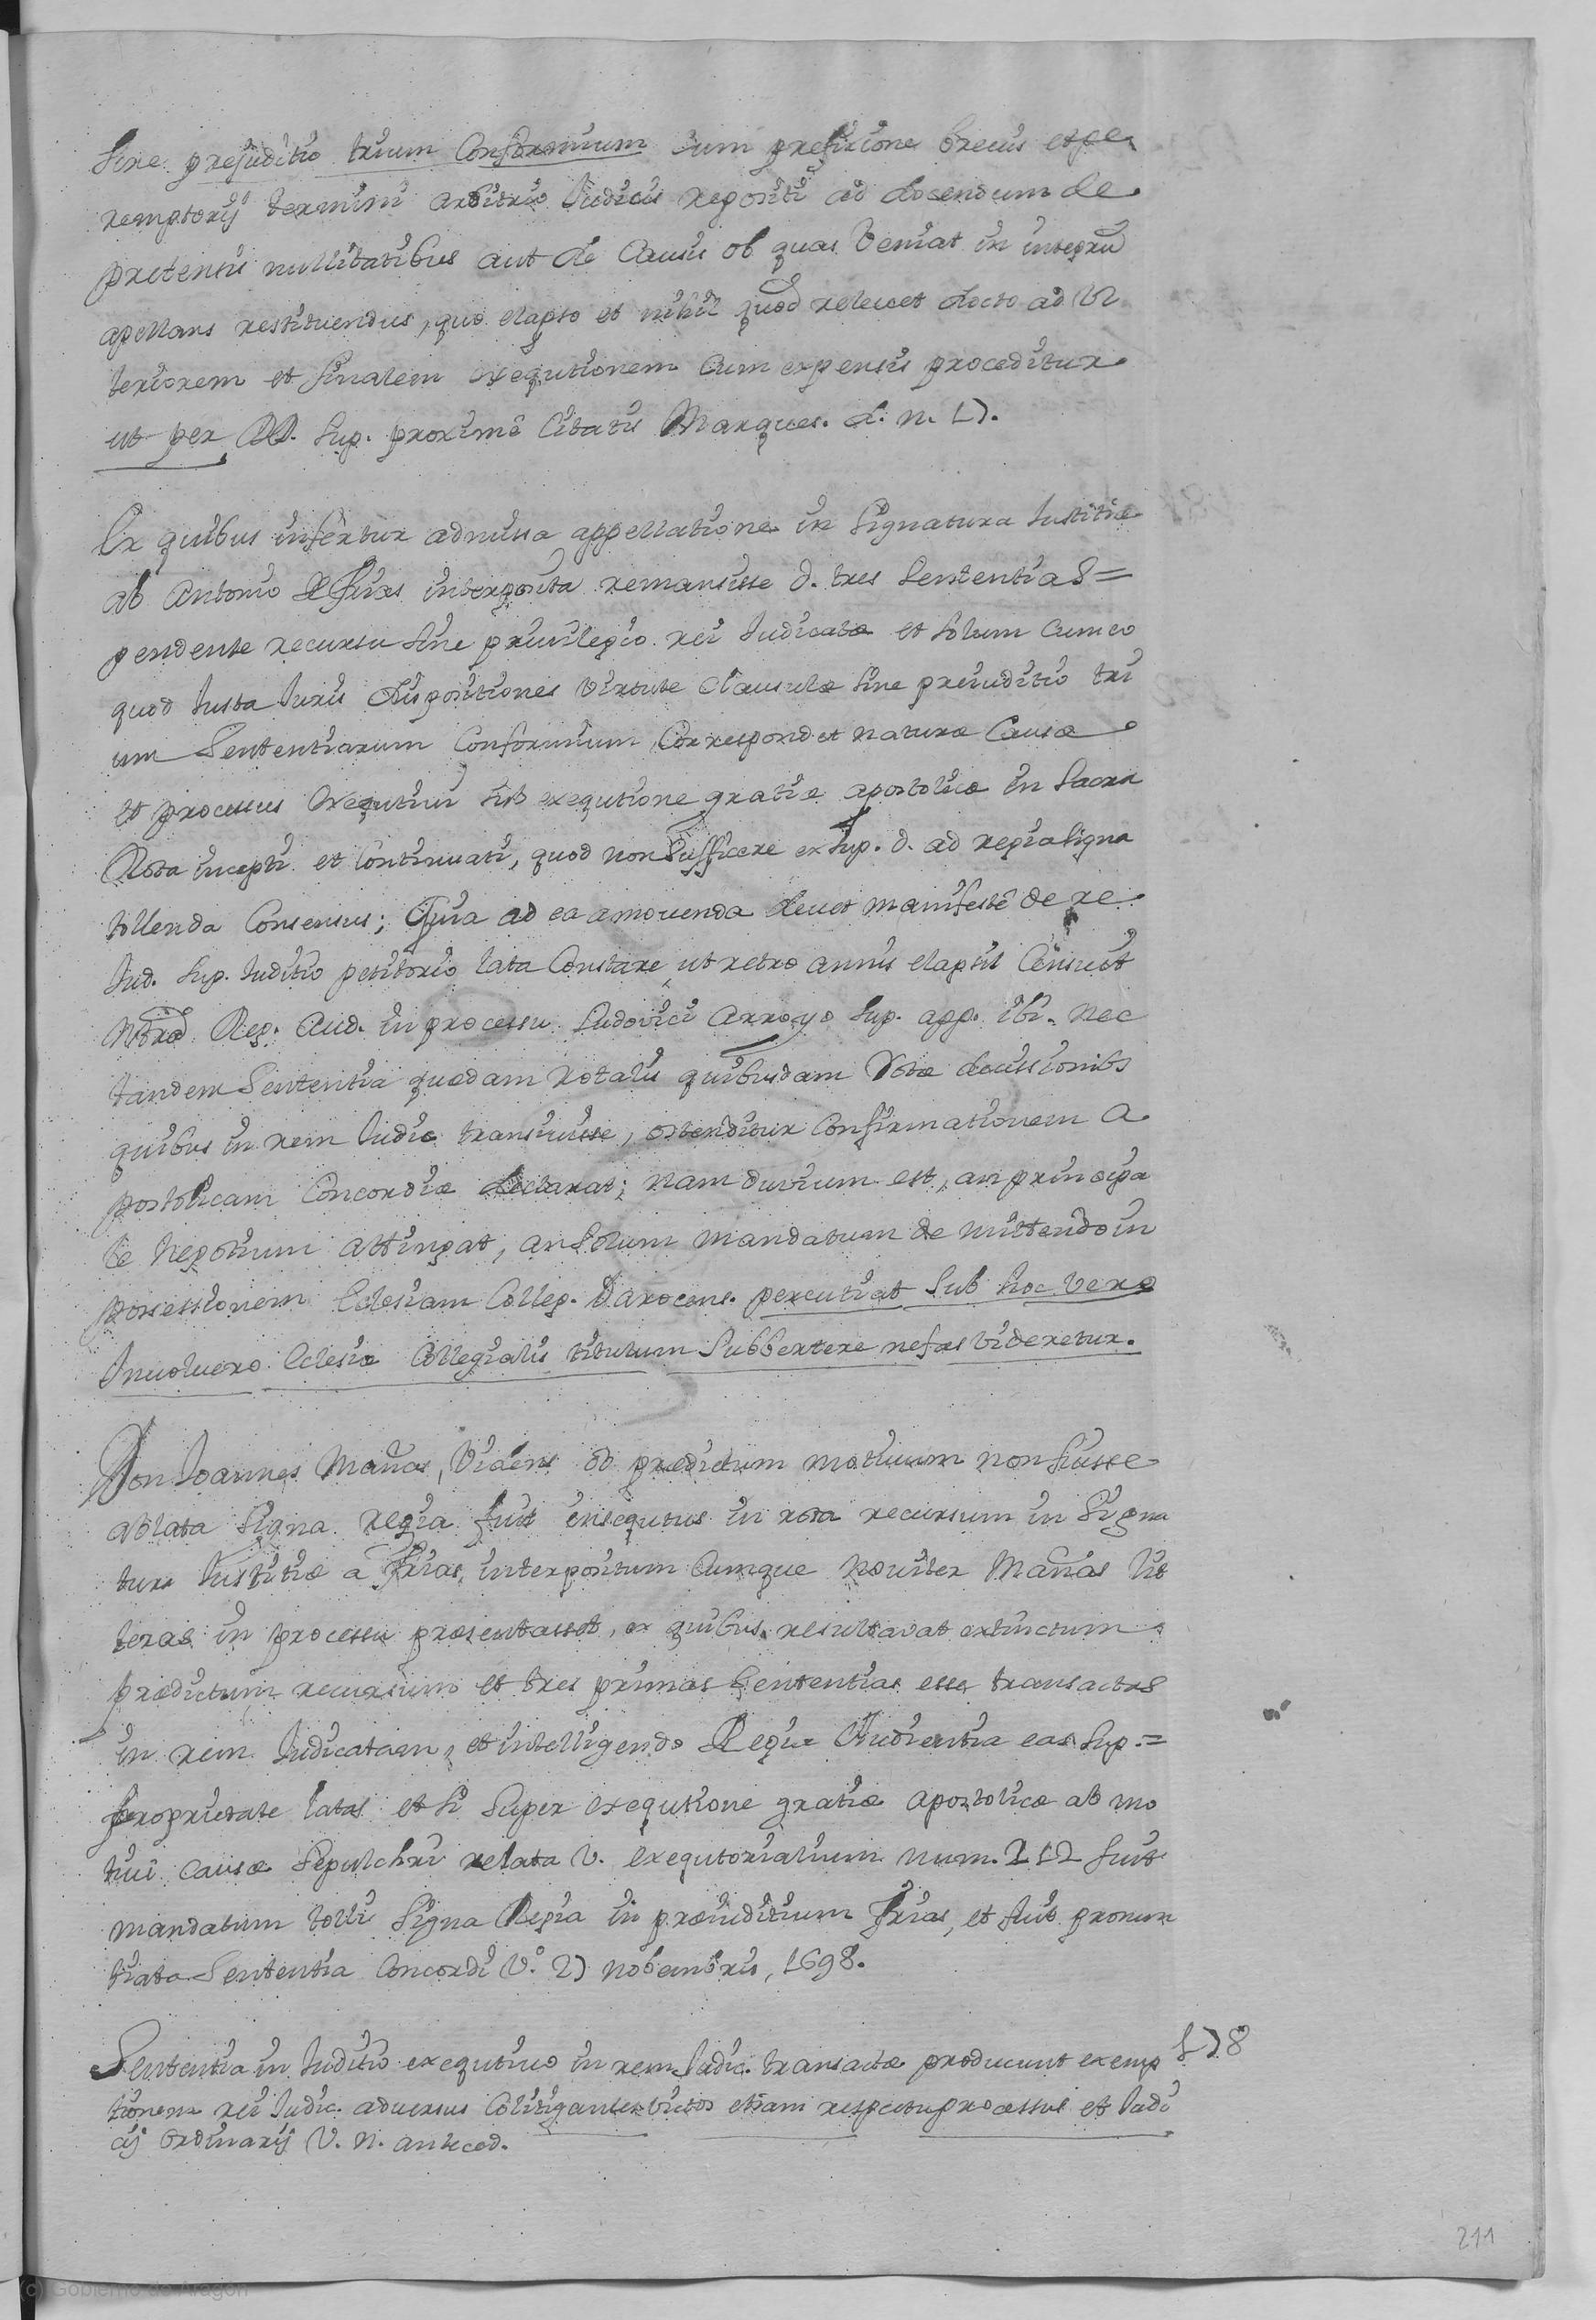 sine prejuditio trium Conformium cum prefixione brevis et pe
remptorij termini arbitrio Iudicis repositi ad docendum de
pretensis nullitatibus aut de Causis ob quas veniat in integrũ
apellans restituendus, quo elapso et nihil quod relevet docto ad Vl
teriorem et finalem exequtionem cum expensis proceditur
ut per DD. sup. proximè Citatis Marques. d. n. 17.
Ex quibus infertur admissa appellatione in signatura Iustitiæ
ab Antonio de Frias interposita remansisse d. tres sententias=
pendente recursu sine privilegio rei Iudicatæ et solum cum eo
quod Iusta Iuris dispositiones virtute Clausulæ sine preiuditio tri
um Sententiarum Conformium, Correspondet naturæ Causæ
et processus exequtivi sup exequtione gratiæ apostolicæ in Sacra
Rota incepti et Continuati, quod non sufficere ex sup. d. ad regia signa
tollenda Consensus; Quia ad ea amovenda devet manifestè de re
Iud. sup. Iuditio petitorio lata Constare, ut retro annis elapsis Censuit
Nõra Reg. Aud. in processu Ludovici Arroyo sup. app. ibi. Nec
tandem Sententia quædam rotalis quibusdam Rotæ decissionibs
quibus in rem Iudic transivisse, ostenditur Confirmationem A
postolicam Concordiæ declarat; nam duvium est, an principa
le negotium attingat, an solum mandatum de mittendo in
possessionem Eclesiam Colleg. Darocens. percutiat sub hoc vero
Involucro Eclesiæ Collegialis titulum Subbertere nefas videretur.
Don Ioannes Mañas, videns ob prædictum motivum non fuisse
ablata Signa regia fuit insequtus in rota recursum in Signa
tura Iustitiæ a Frias interpositum Cumque noviter Mañas lit
teras in processu præsentasset, ex quibus resultavat extinctum
prædictum recursum et tres primas sententias esse transactas
in rem Iudicatam, et intelligendo Regia Audientia eas sup.=
proprietate latas et si super exequtione gratiæ apostolicæ ab mo
tivi causæ sepulchri relata V. exequtorialium num. 212 fuit
mandatum tolli Signa Regia in præiuditium Frias, et fuit pronun
tiata Sententia Concordi V.º 27 nobembris, 1698.
Sententia in Iuditio exequtivo in rem Iudic. transactæ producunt exemp §78
tionem rei Iudic. adversus Colitigantes victos etiam respectu processus et Iudi
cij ordinarij V. n. anteced.
211
(c) Gobierno de Aragón